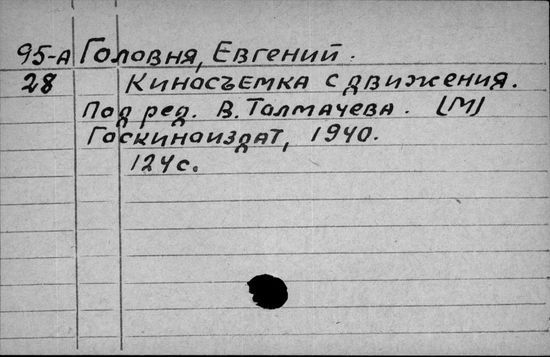 95-А Головня, Евгений.
28 Киносъемка с движения.
Под ред. В. Толмачева. [М]
Госкиноиздат, 1940.
124с.